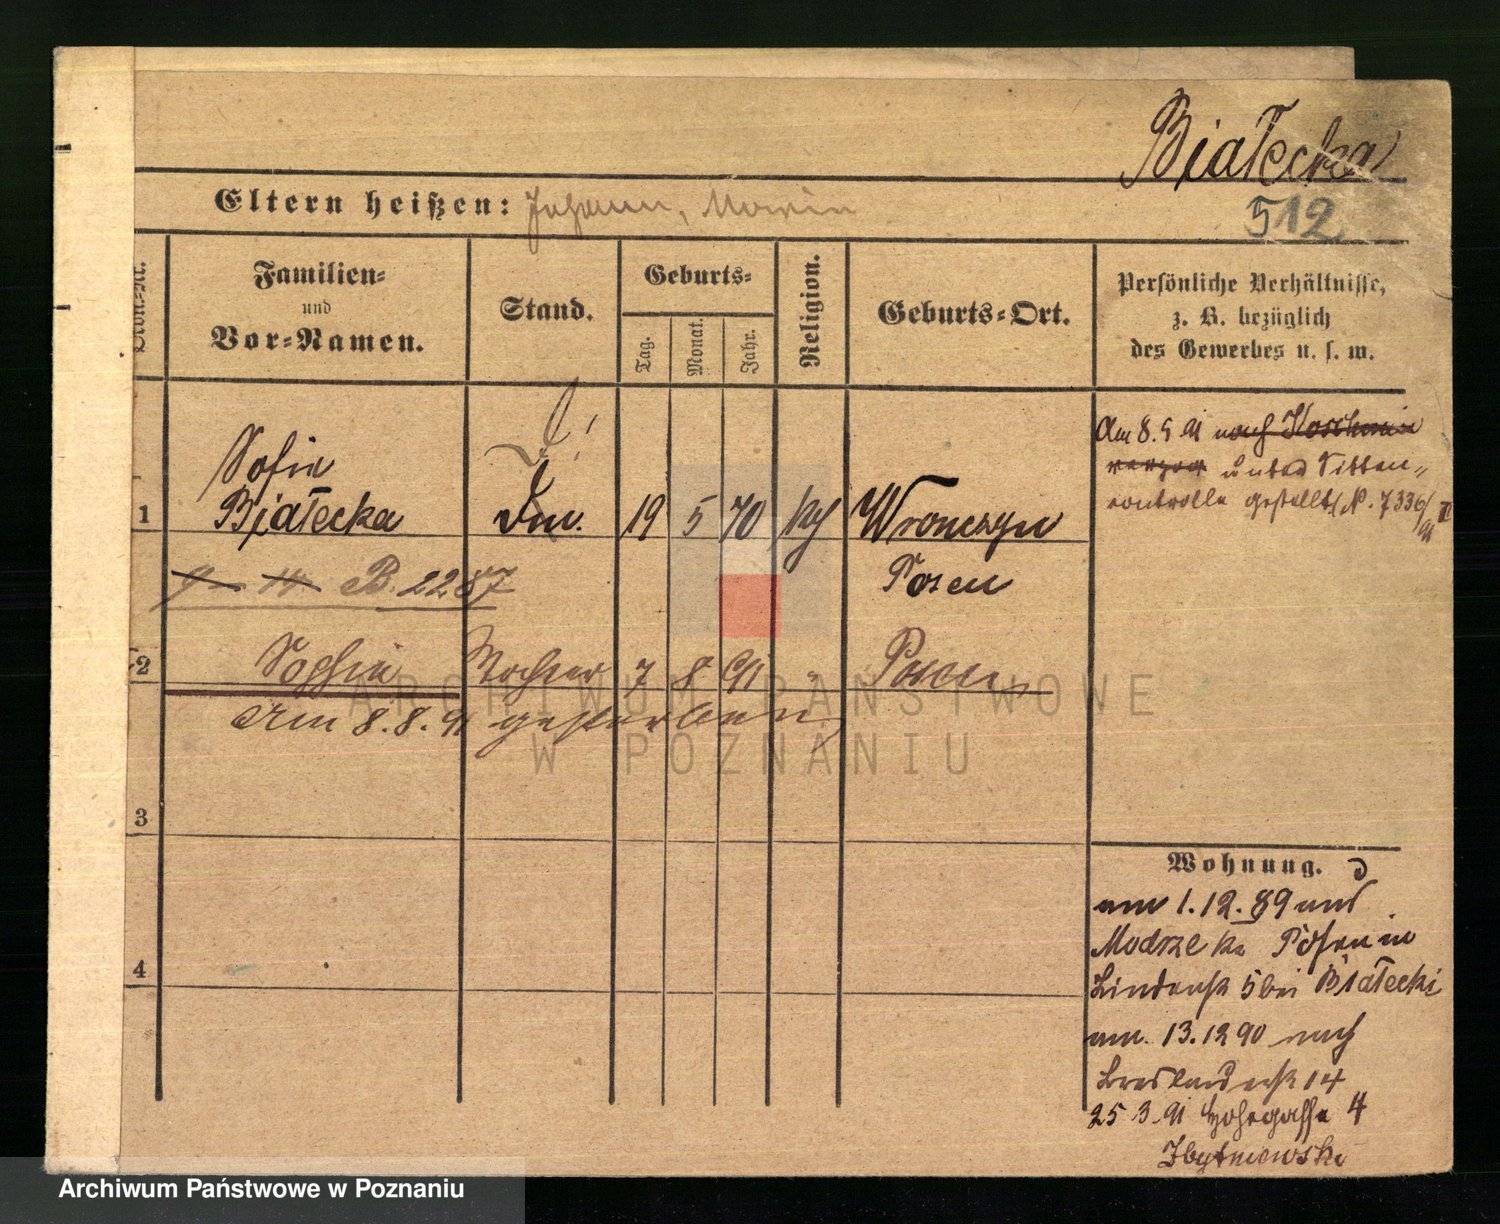 Białecka
512
Eltern heißen: Johann, Maria
Familien- und Vor-Namen.
Stand.
Geburts-
Tag.
Monat.
Jahr.
Religion.
Geburts-Ort.
Persönliche Verhältnisse,
z. B. bezüglich
des Gewerbes u. s. w.
1
Sofie
Białecka
19 5 70 kth Wronczyn
Posen
B. 2287
2 Sophie Tochter 7 8 91 " Posen
Am 8.8.91 gestorben
3
4
Am 8.5.91 nach Koschmin
verzog unter Sitten-
controlle gestellt
Wohnung.
am 1.12.89 aus
Modrze
Posen in
Lindenstr 5 bei Białecki
am 13.12 90 nach
Breslauerstr 14
25 3.91 Hohegasse 4
Zbytniewski
ARCHIWUM PAŃSTWOWE
W POZNANIU
Archiwum Państwowe w Poznaniu